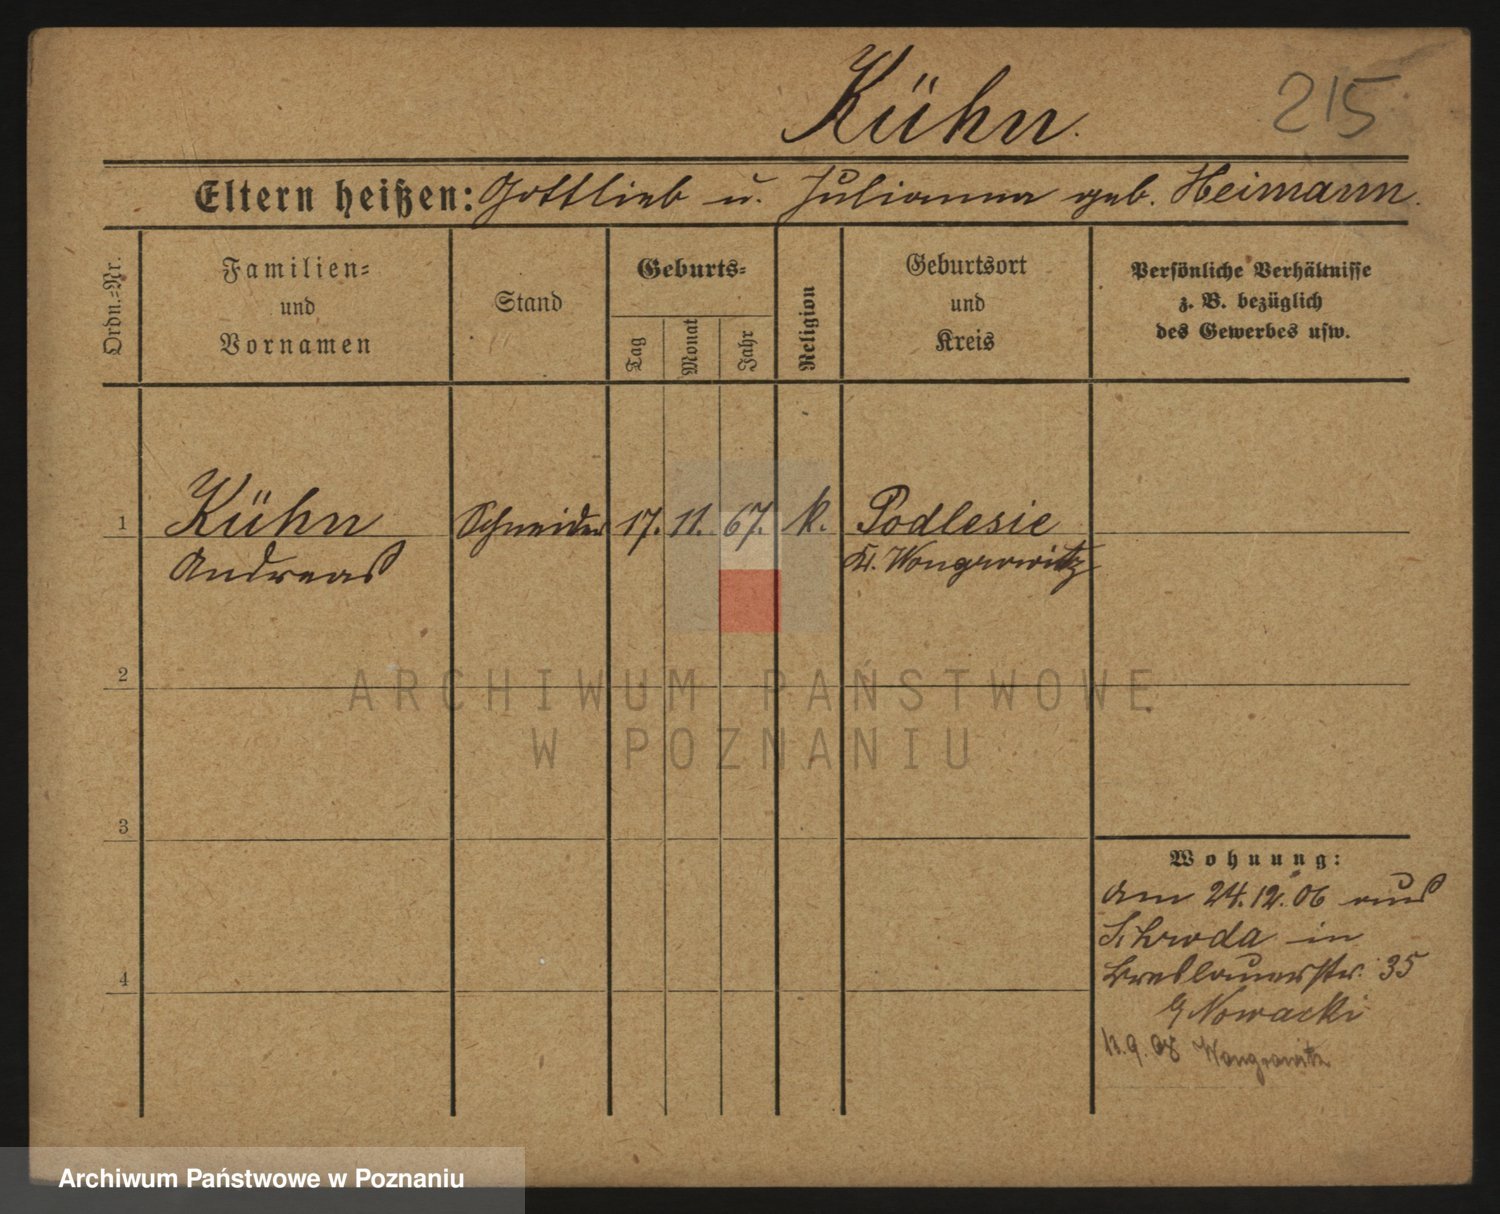 Kühn.
215
Eltern heißen: Gottlieb u. Julianna geb. Heimann.
Ordn.=Nr.
Familien=
und
Vornamen
Stand
Geburts=
Tag
Monat
Jahr
Religion
Geburtsort
und
Kreis
Persönliche Verhältnisse
z. B. bezüglich
des Gewerbes usw.
1
Kühn
Andreas
Schneider
17. 11. 67. k.
Podlesie
Kr. Wongrowitz
2
3
4
Wohnung:
am 24.12.06 aus
Schroda in
Breslauerstr. 35
Nowacki
11.9.08 Wongrowitz
ARCHIWUM PAŃSTWOWE
W POZNANIU
Archiwum Państwowe w Poznaniu